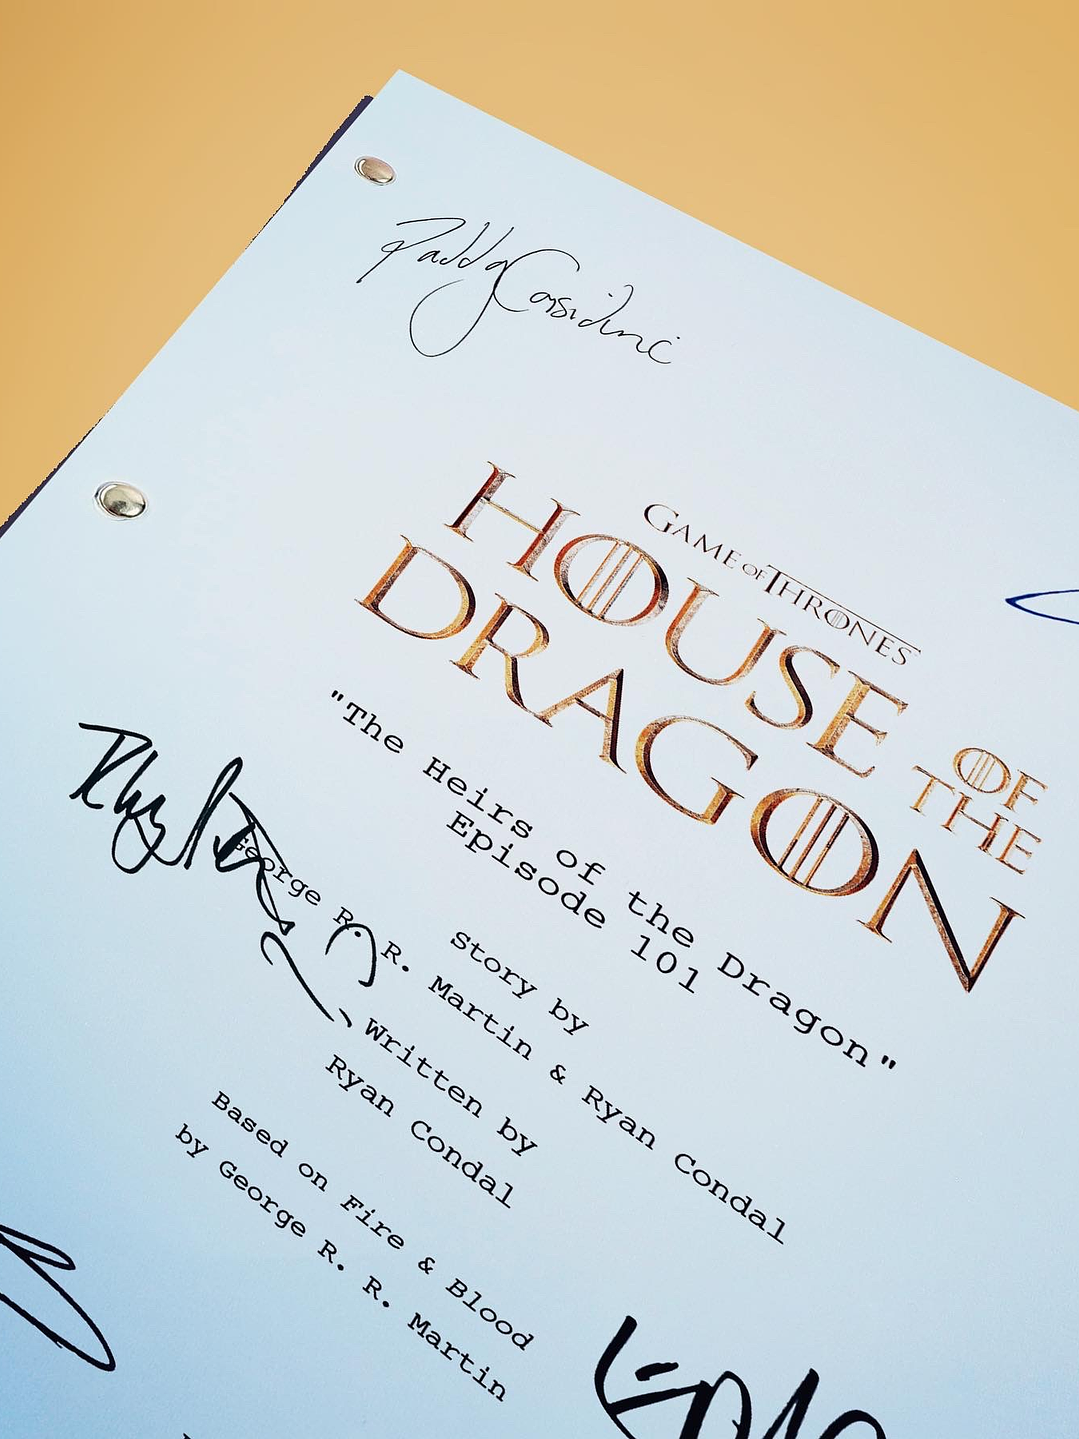 Paddy Considine
GAME OF THRONES
HOUSE
OF THE
DRAGON
"The Heirs of the Dragon"
Episode 101
Story by
George R. R. Martin & Ryan Condal
Written by
Ryan Condal
Based on Fire & Blood
by George R. R. Martin